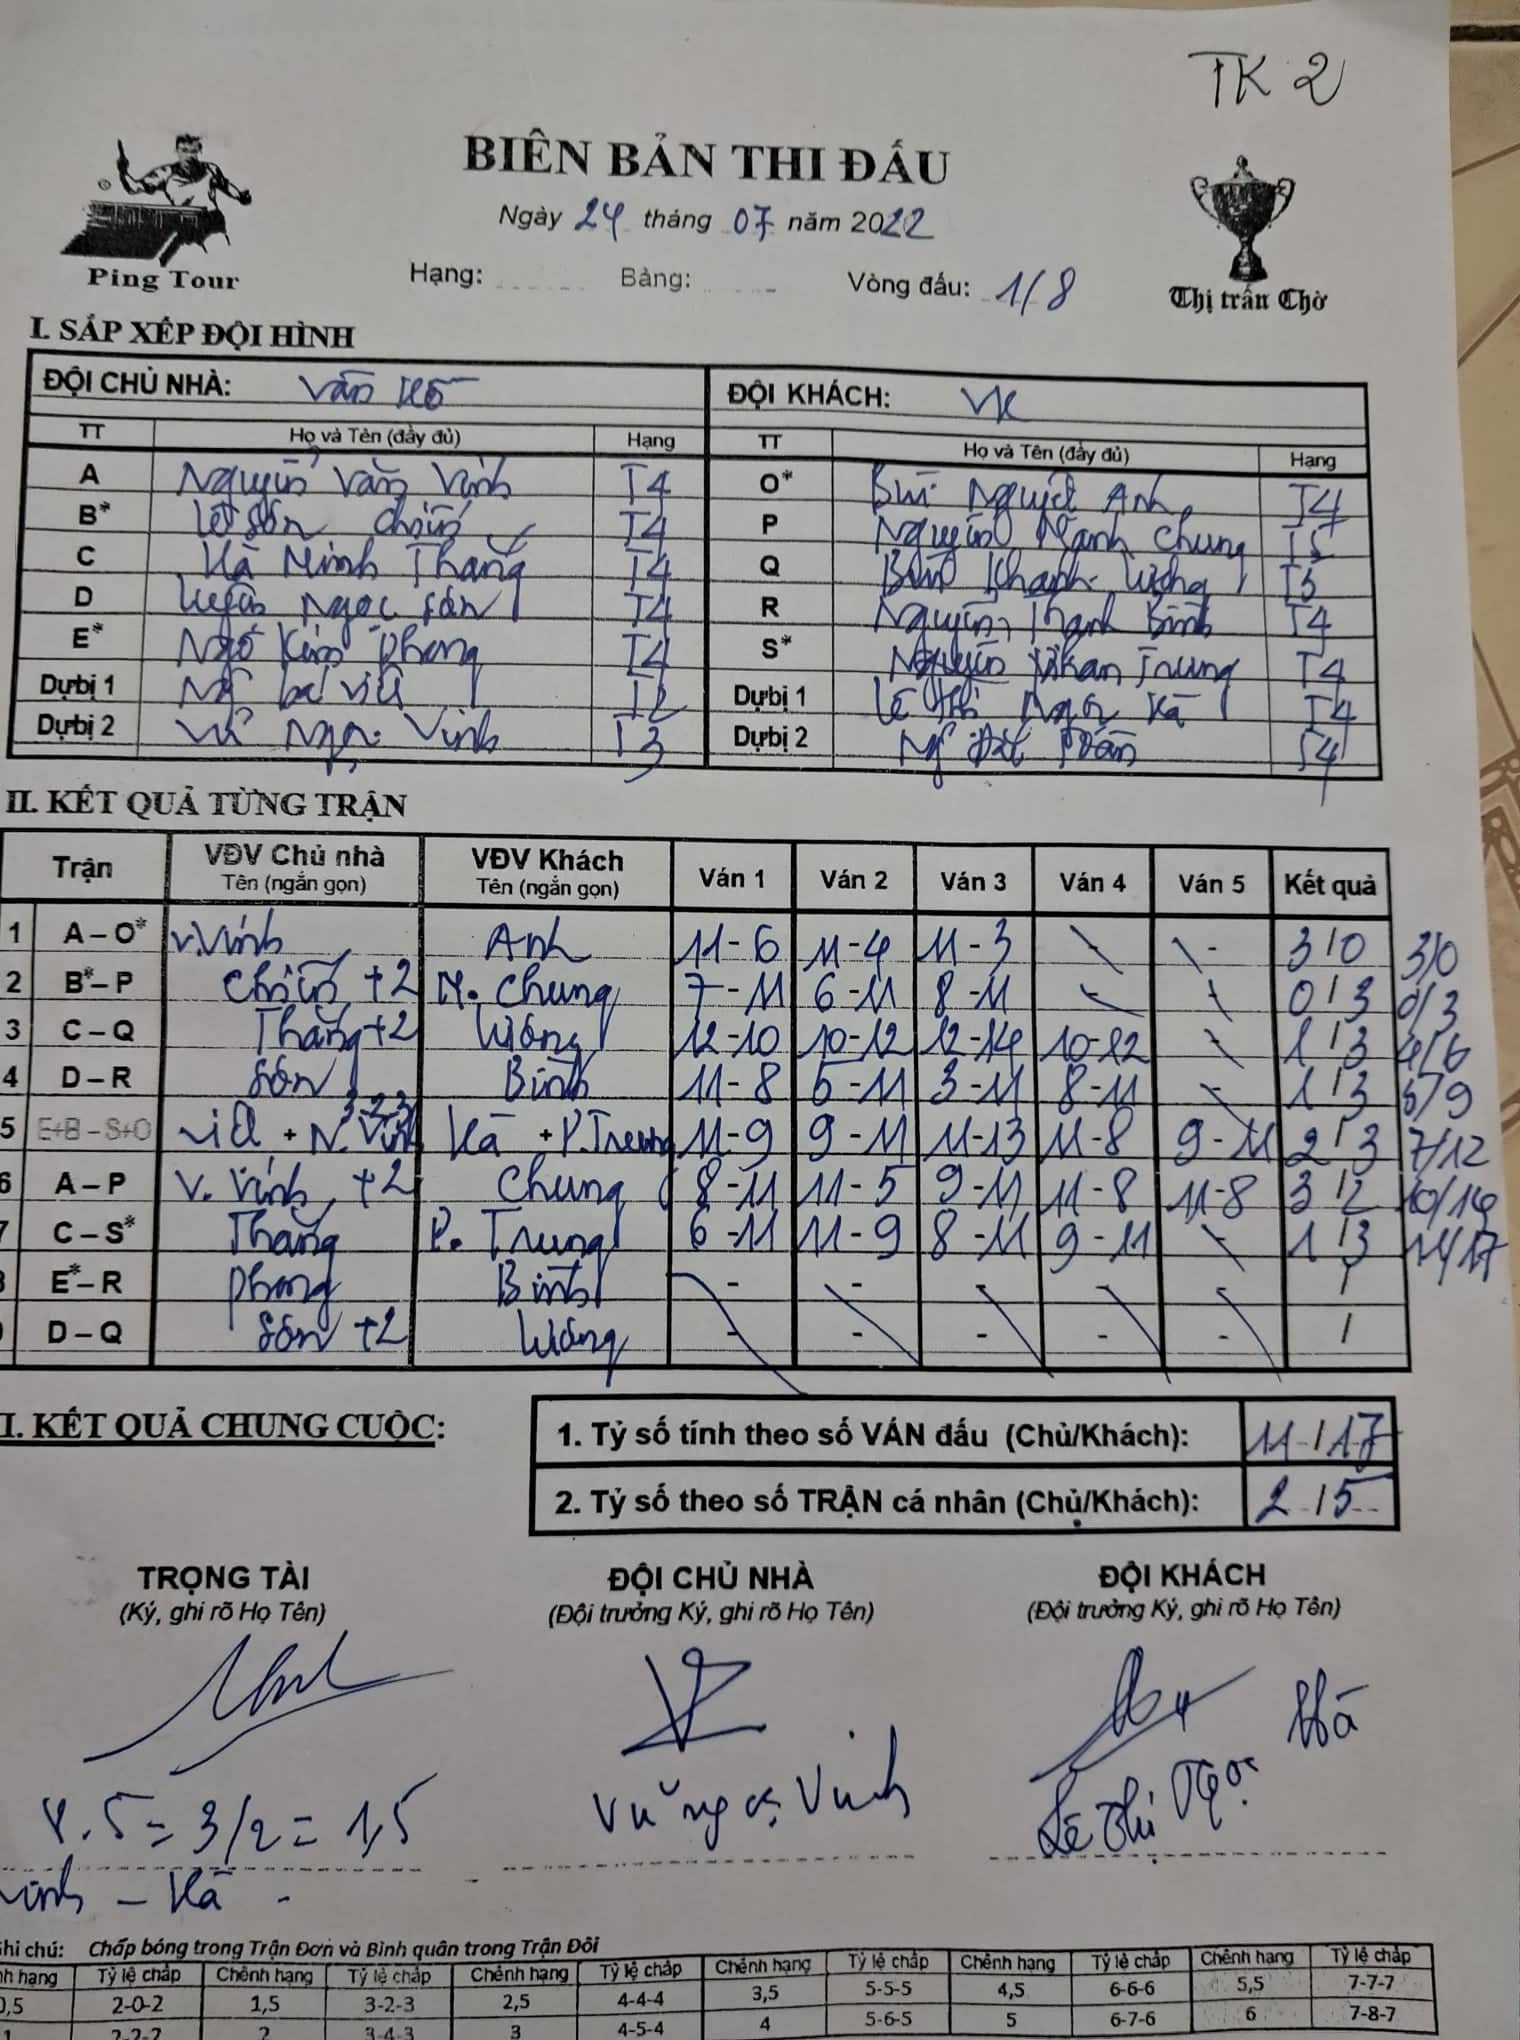 TK 2
BIÊN BẢN THI ĐẤU
Ngày 24 tháng 07 năm 2022
Ping Tour
Hạng: Bảng: Vòng đấu: 1/8
Thị trấn Chờ
I. SẮP XẾP ĐỘI HÌNH
ĐỘI CHỦ NHÀ: ĐỘI KHÁCH: VK
TT Họ và Tên (đầy đủ) Hạng TT Họ và Tên (đầy đủ) Hạng
A Nguyễn Văn Vinh T4 O* Bùi Nguyệt Anh T4
B* T4 P Nguyễn Mạnh Chung T5
C Hà Minh Thắng T4 Q T5
D Ngọc Sơn T4 R Nguyễn Thanh Bình T4
E* Ngô Kim Phong T4 S* Nguyễn Trung T4
Dự bị 1 T2 Dự bị 1 Lê Thị Ngọc Hà T4
Dự bị 2 Vũ Ngọc Vinh T3 Dự bị 2 T4
II. KẾT QUẢ TỪNG TRẬN
Trận VĐV Chủ nhà Tên (ngắn gọn) VĐV Khách Tên (ngắn gọn) Ván 1 Ván 2 Ván 3 Ván 4 Ván 5 Kết quả
1 A – O* V.Vinh Anh 11-6 11-4 11-3 - - 3/0 3/0
2 B* – P +2 M. Chung 7-11 6-11 8-11 - - 0/3 0/3
3 C – Q Thắng +2 Lương 12-10 10-12 12-14 10-12 - 1/3 4/6
4 D – R Sơn Bình 11-8 5-11 3-11 8-11 - 1/3 5/9
5 E+B – S+O + N. Vinh 3-2-3 Hà + P.Trung 11-9 9-11 11-13 11-8 9-11 2/3 7/12
6 A – P V. Vinh +2 Chung 8-11 11-5 9-11 11-8 11-8 3/2 10/14
7 C – S* Thắng P. Trung 6-11 11-9 8-11 9-11 - 1/3 11/17
E* – R Phong Bình - - - - - /
D – Q Sơn +2 Lương - - - - - /
I. KẾT QUẢ CHUNG CUỘC:
1. Tỷ số tính theo số VÁN đấu (Chủ/Khách): 11/17
2. Tỷ số theo số TRẬN cá nhân (Chủ/Khách): 2/5
TRỌNG TÀI ĐỘI CHỦ NHÀ ĐỘI KHÁCH
(Ký, ghi rõ Họ Tên) (Đội trưởng Ký, ghi rõ Họ Tên) (Đội trưởng Ký, ghi rõ Họ Tên)
Vũ Ngọc Vinh Lê Thị Ngọc Hà
5 = 3/2 = 1,5
Vinh – Hà -
hi chú: Chấp bóng trong Trận Đơn và Bình quân trong Trận Đôi
nh hạng Tỷ lệ chấp Chênh hạng Tỷ lệ chấp Chênh hạng Tỷ lệ chấp Chênh hạng Tỷ lệ chấp Chênh hạng Tỷ lệ chấp Chênh hạng Tỷ lệ chấp
0,5 2-0-2 1,5 3-2-3 2,5 4-4-4 3,5 5-5-5 4,5 6-6-6 5,5 7-7-7
1 2-2-2 2 3-4-3 3 4-5-4 4 5-6-5 5 6-7-6 6 7-8-7